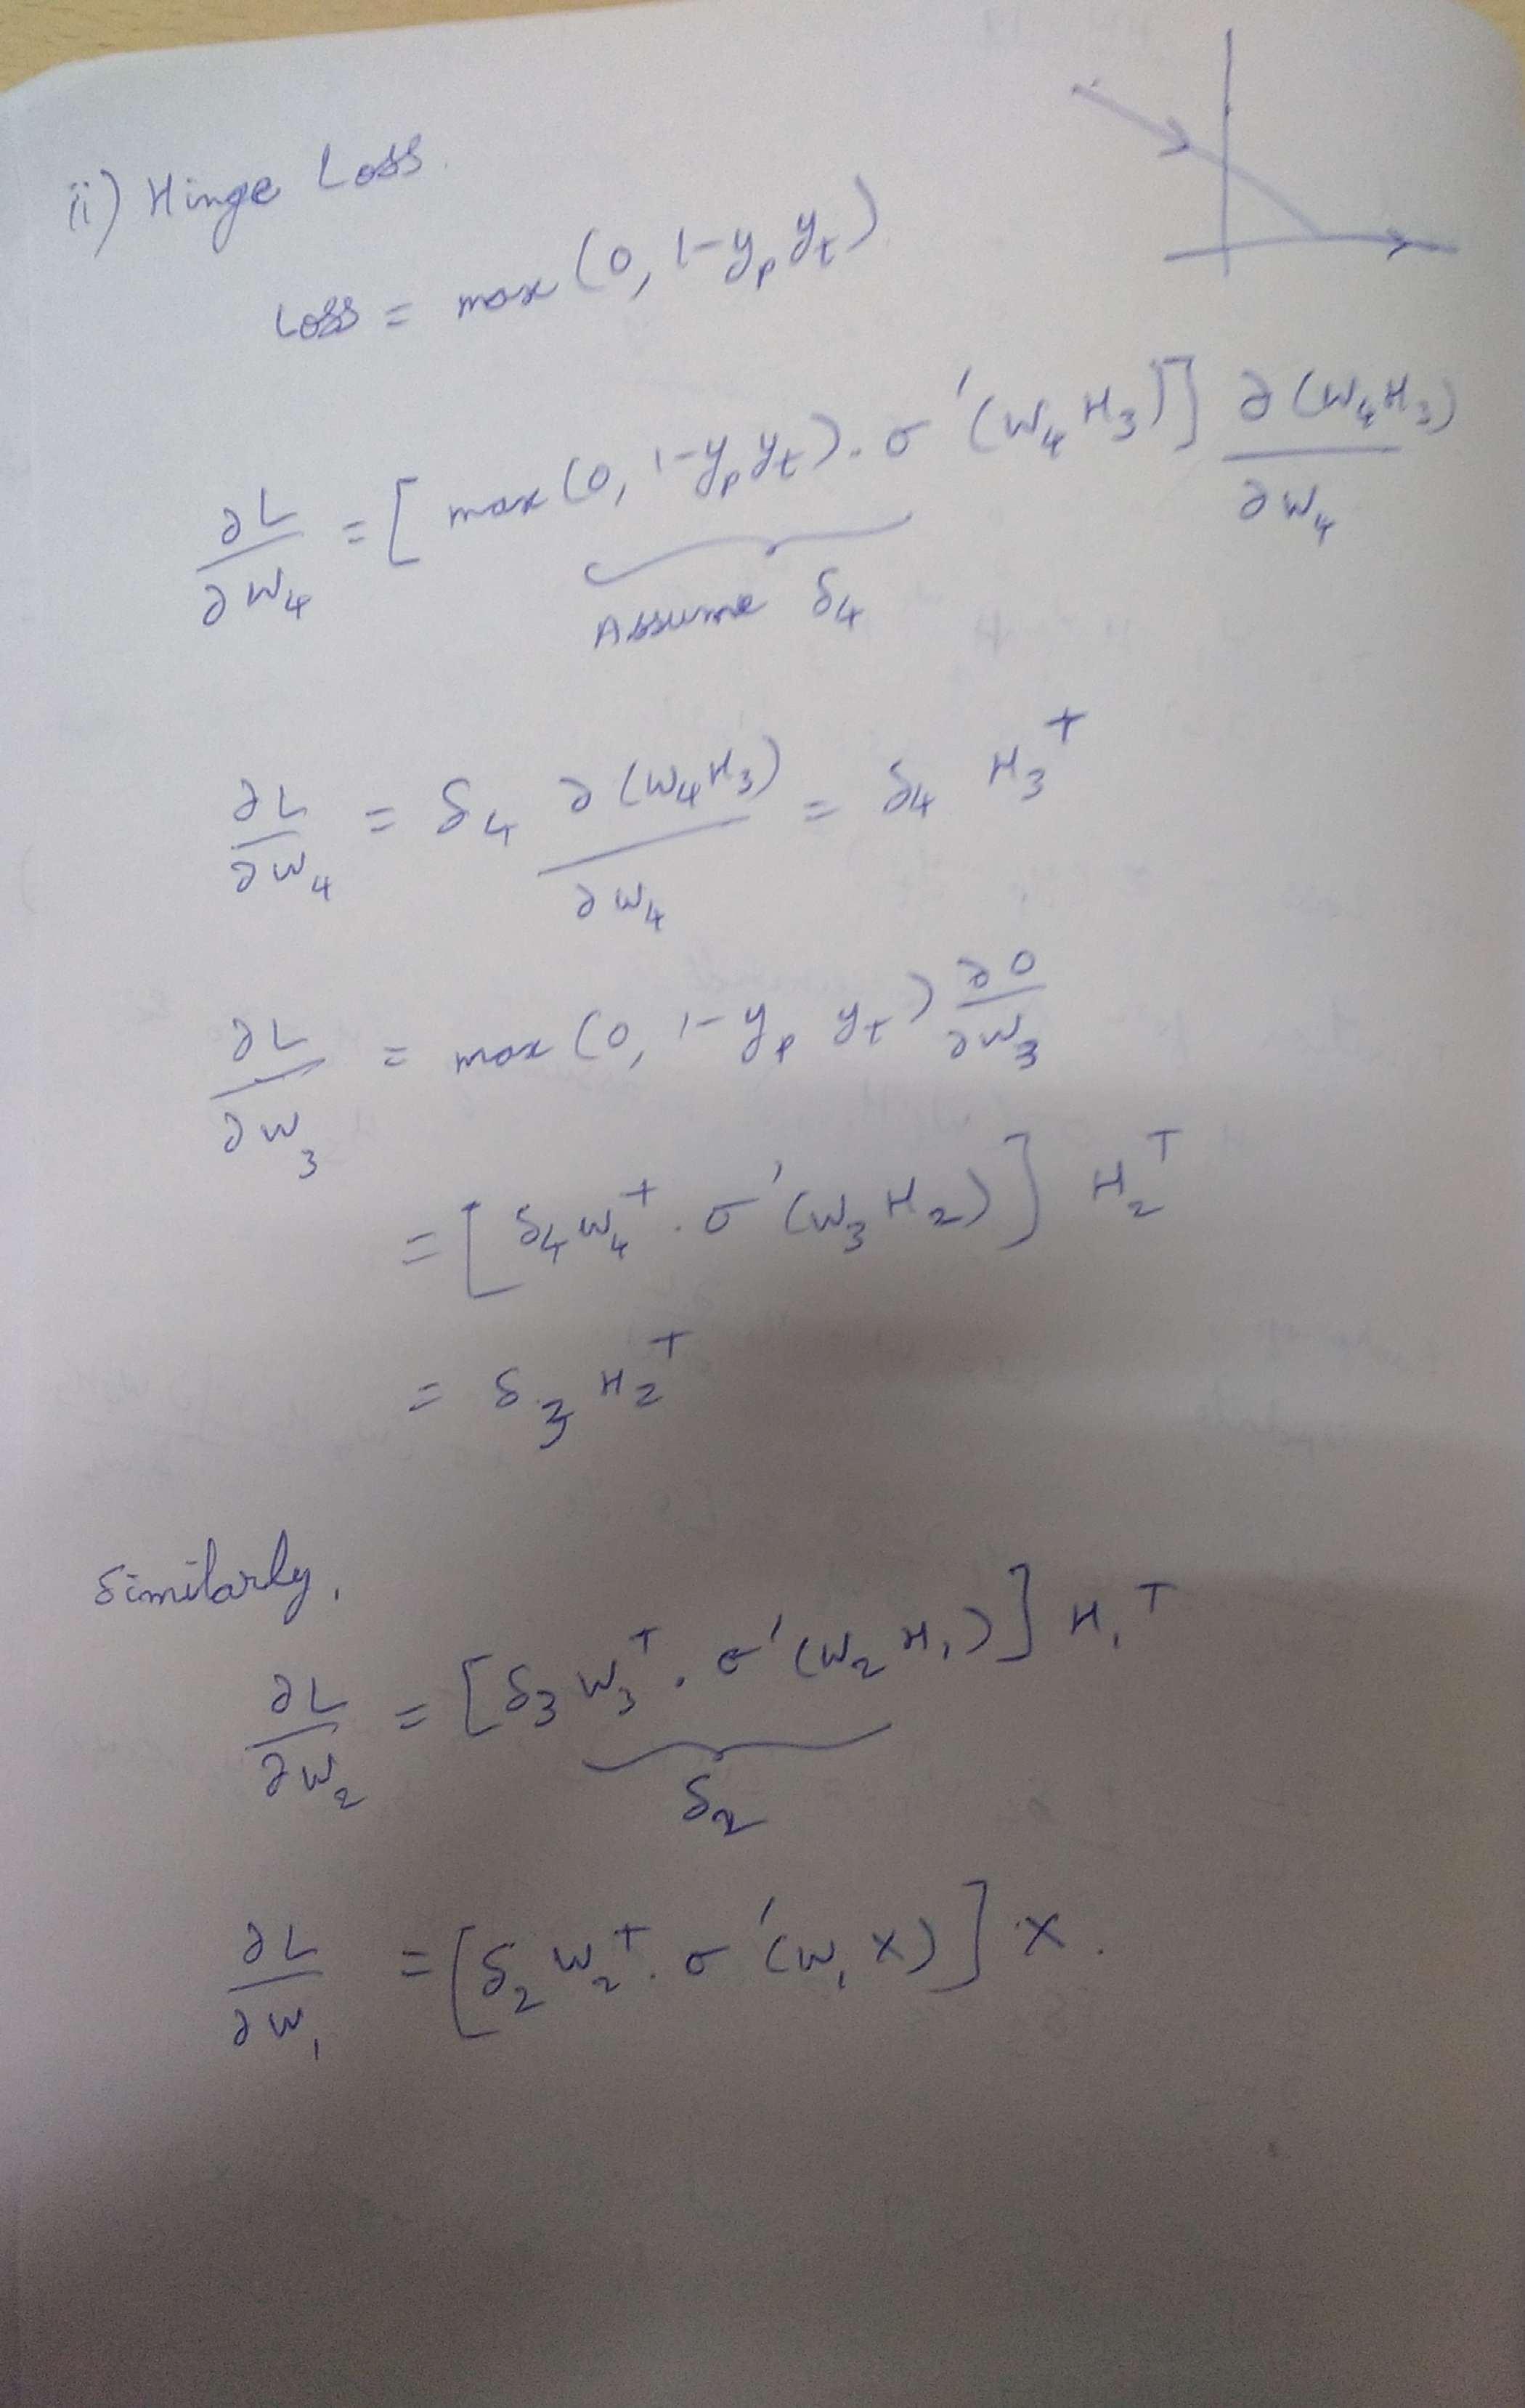 ii) Hinge Loss.
Loss = max (0, 1-y_p y_t)
∂L/∂W_4 = [ max (0, 1-y_p y_t) . σ'(W_4 H_3)] ∂(W_4 H_3)/∂W_4
Assume δ_4
∂L/∂W_4 = δ_4 ∂(W_4 H_3)/∂W_4 = δ_4 H_3^T
∂L/∂W_3 = max (0, 1-y_p y_t) ∂O/∂W_3
= [ δ_4 W_4^T . σ'(W_3 H_2) ] H_2^T
= δ_3 H_2^T
Similarly,
∂L/∂W_2 = [δ_3 W_3^T . σ'(W_2 H_1)] H_1^T
δ_2
∂L/∂W_1 = [δ_2 W_2^T . σ'(W_1 X)] X.